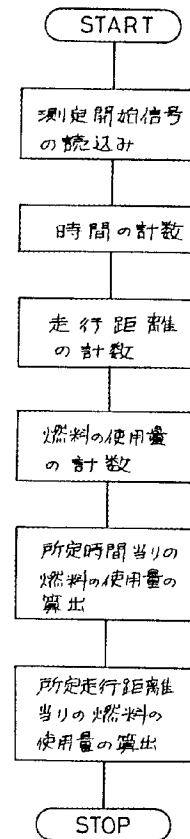 START
測定開始信号
の読込み
時間の計数
走行距離
の計数
燃料の使用量
の計数
所定時間当りの
燃料の使用量の
算出
所定走行距離
当りの燃料の
使用量の算出
STOP